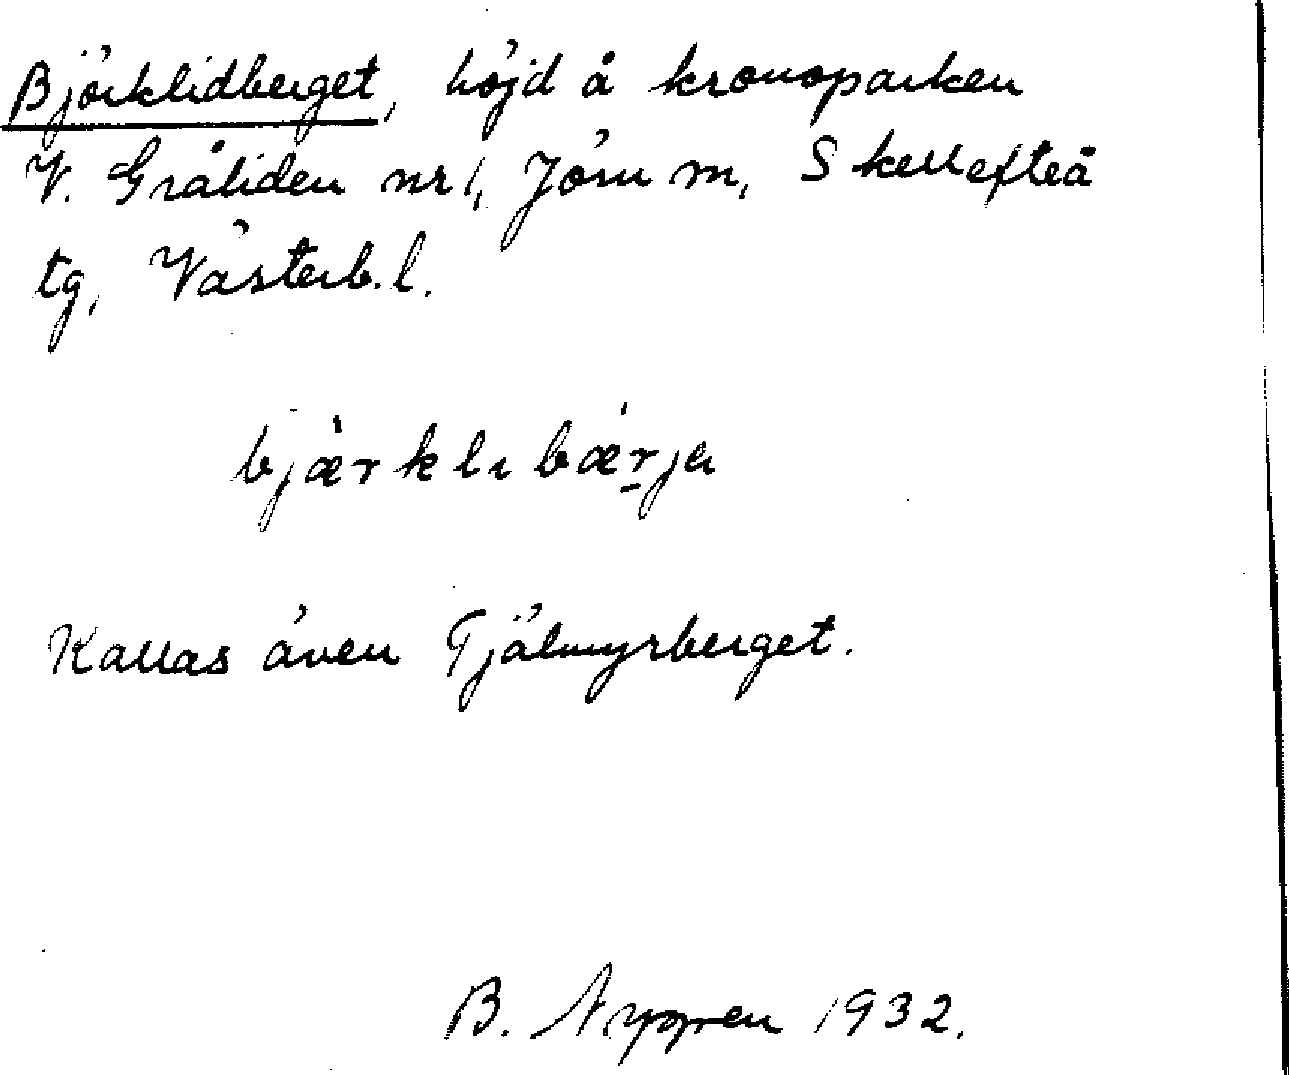 Björklidberget, höjd å kronoparken
V. Gråliden nr 1, Jörn m, Skellefteå
tg, Västerb. l.
bjæ̀rklıbǽrja
Kallas även Tjälmyrberget.
B. Nygren 1932.